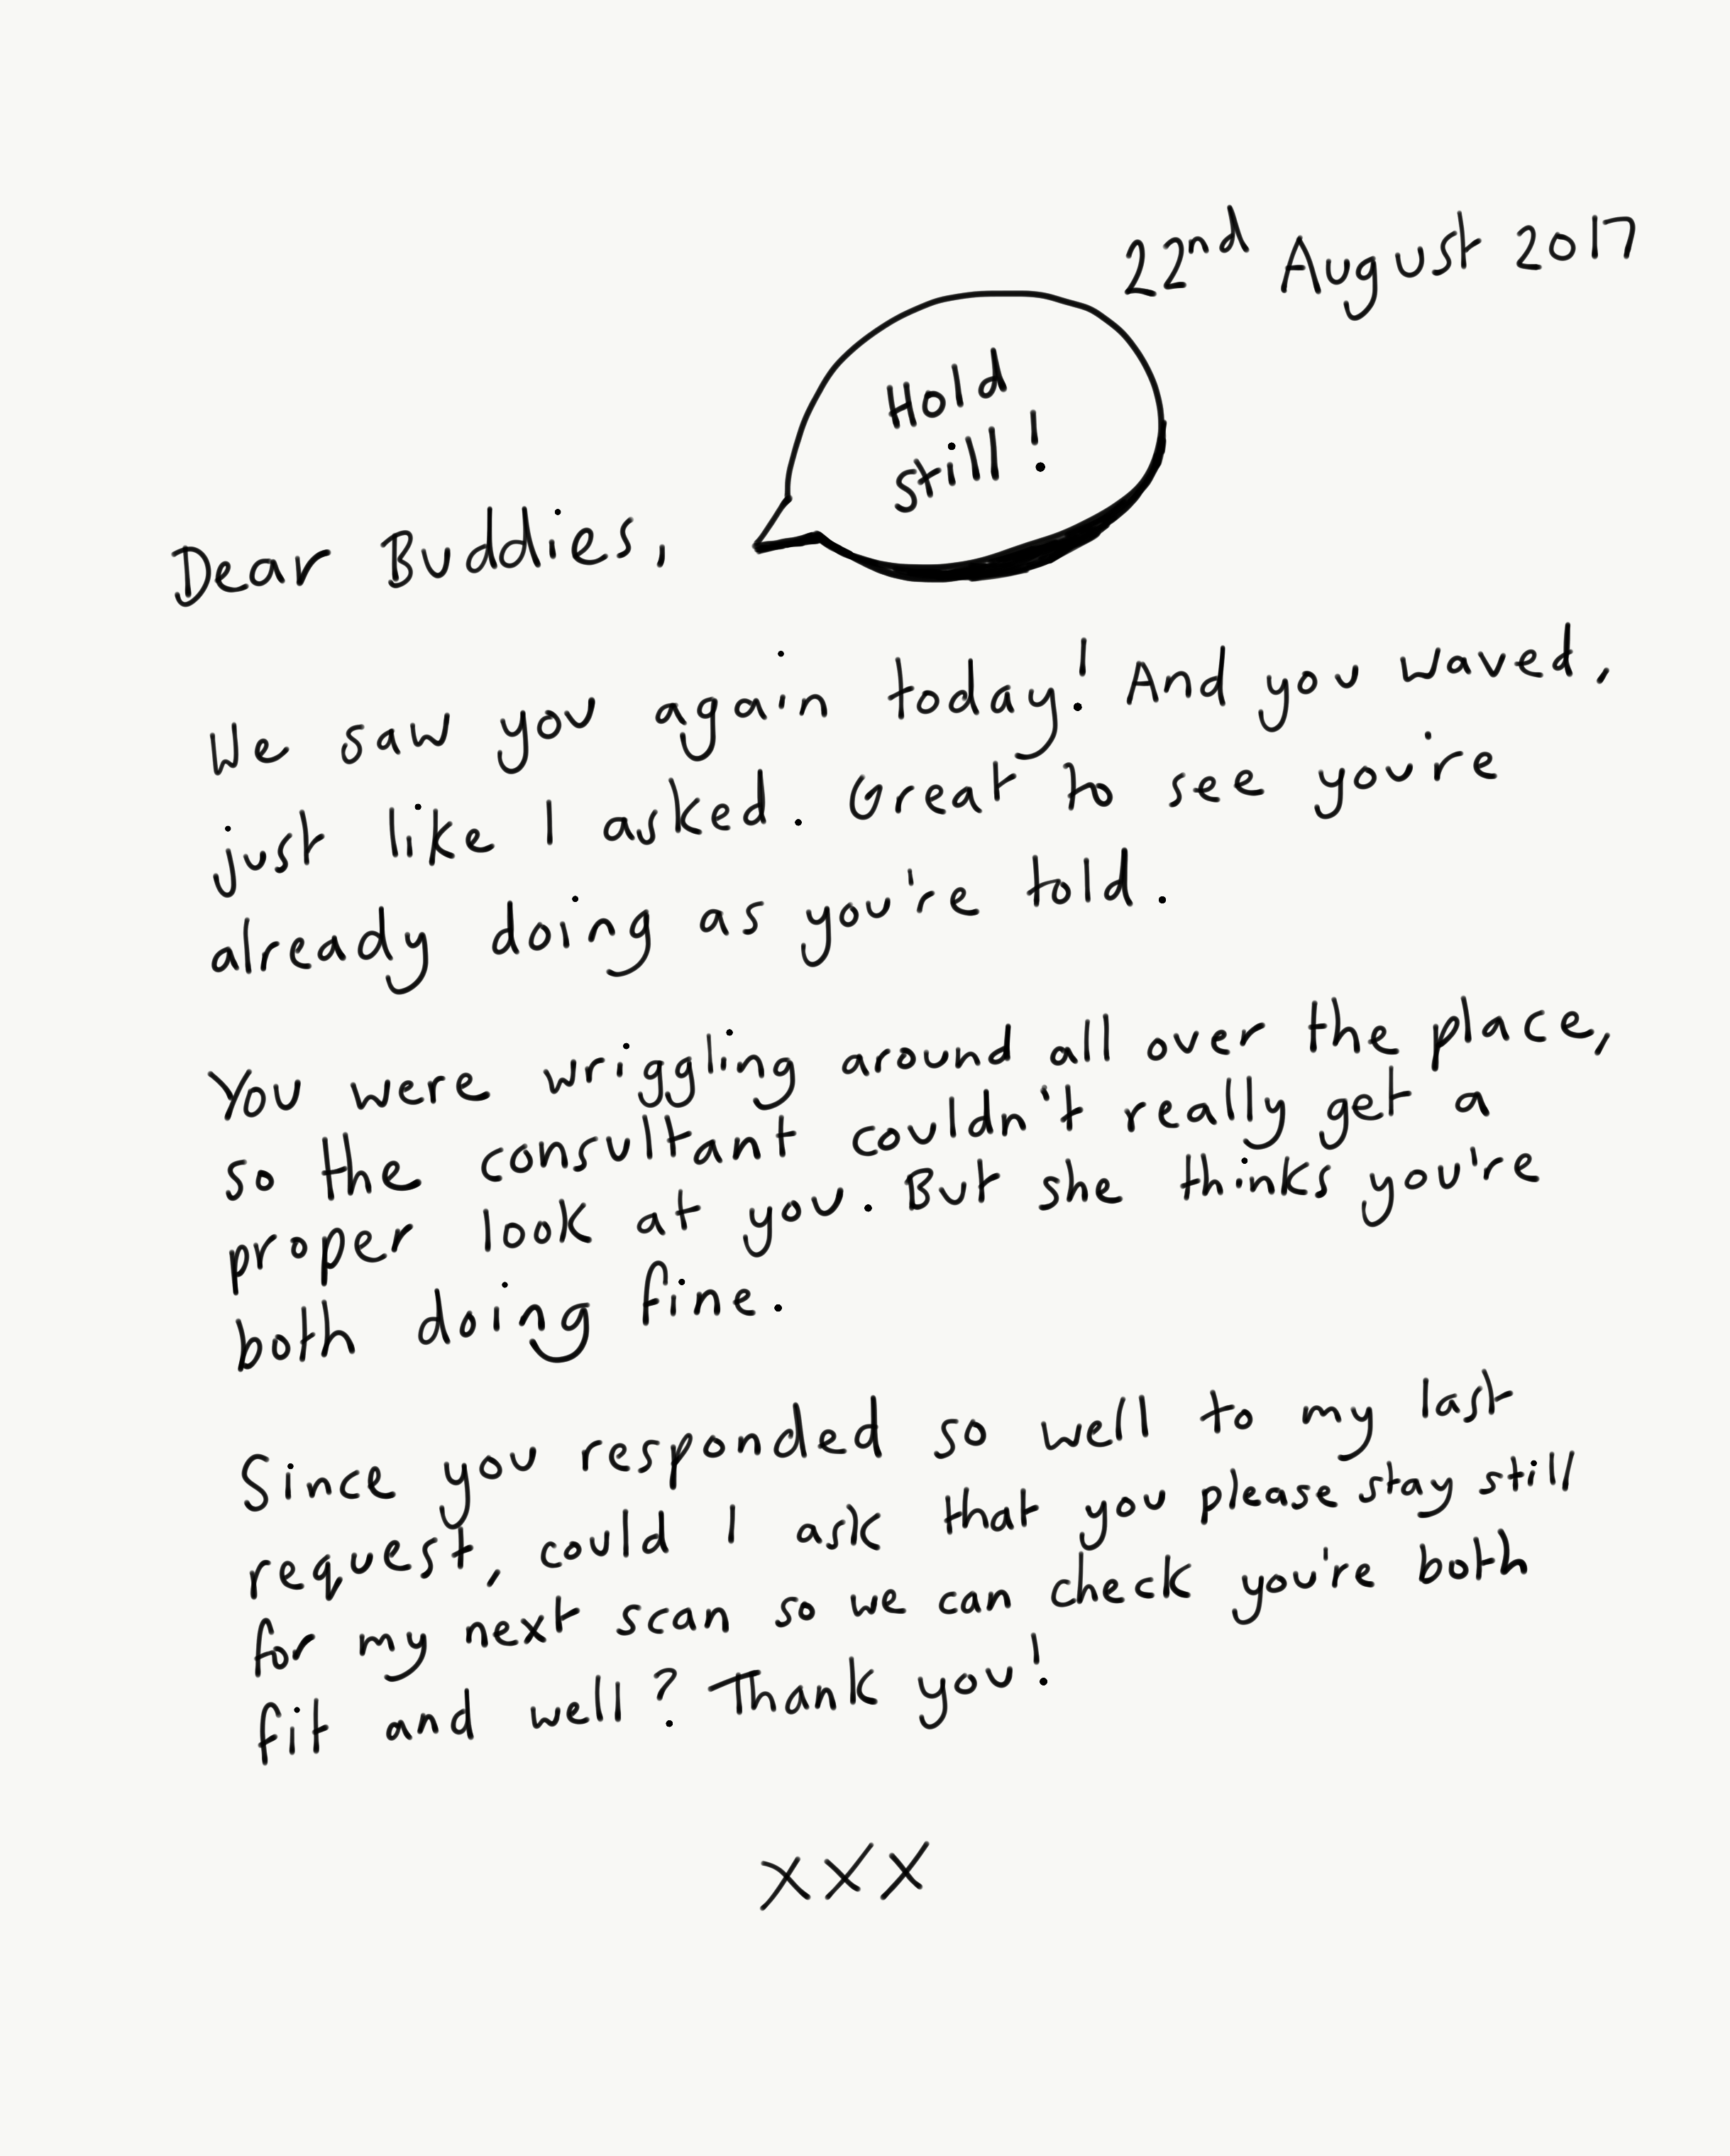 22nd August 2017
Hold
still!
Dear Buddies,
We saw you again today! And you waved,
just like I asked. Great to see you're
already doing as you're told.
You were wriggling around all over the place,
so the consultant couldn't really get a
proper look at you. But she thinks you're
both doing fine.
Since you responded so well to my last
request, could I ask that you please stay still
for my next scan so we can check you're both
fit and well? Thank you!
XXX